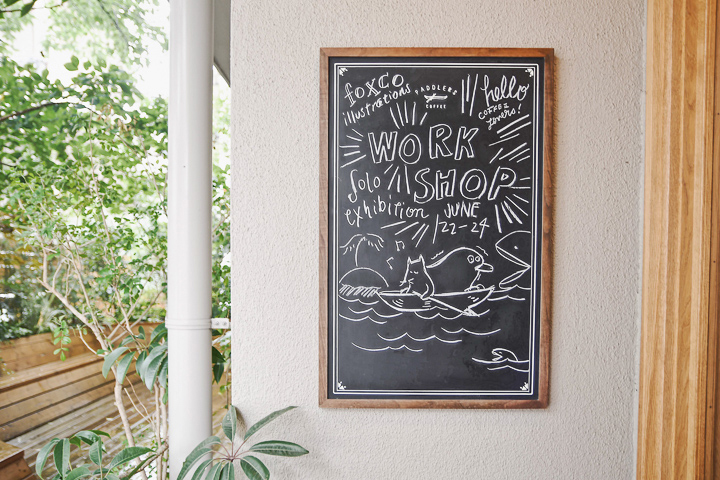 foxco
illustrations
PADDLERS
COFFEE
hello
COFFEE
lovers!
WORK
SHOP
solo
exhibition
JUNE
22-24